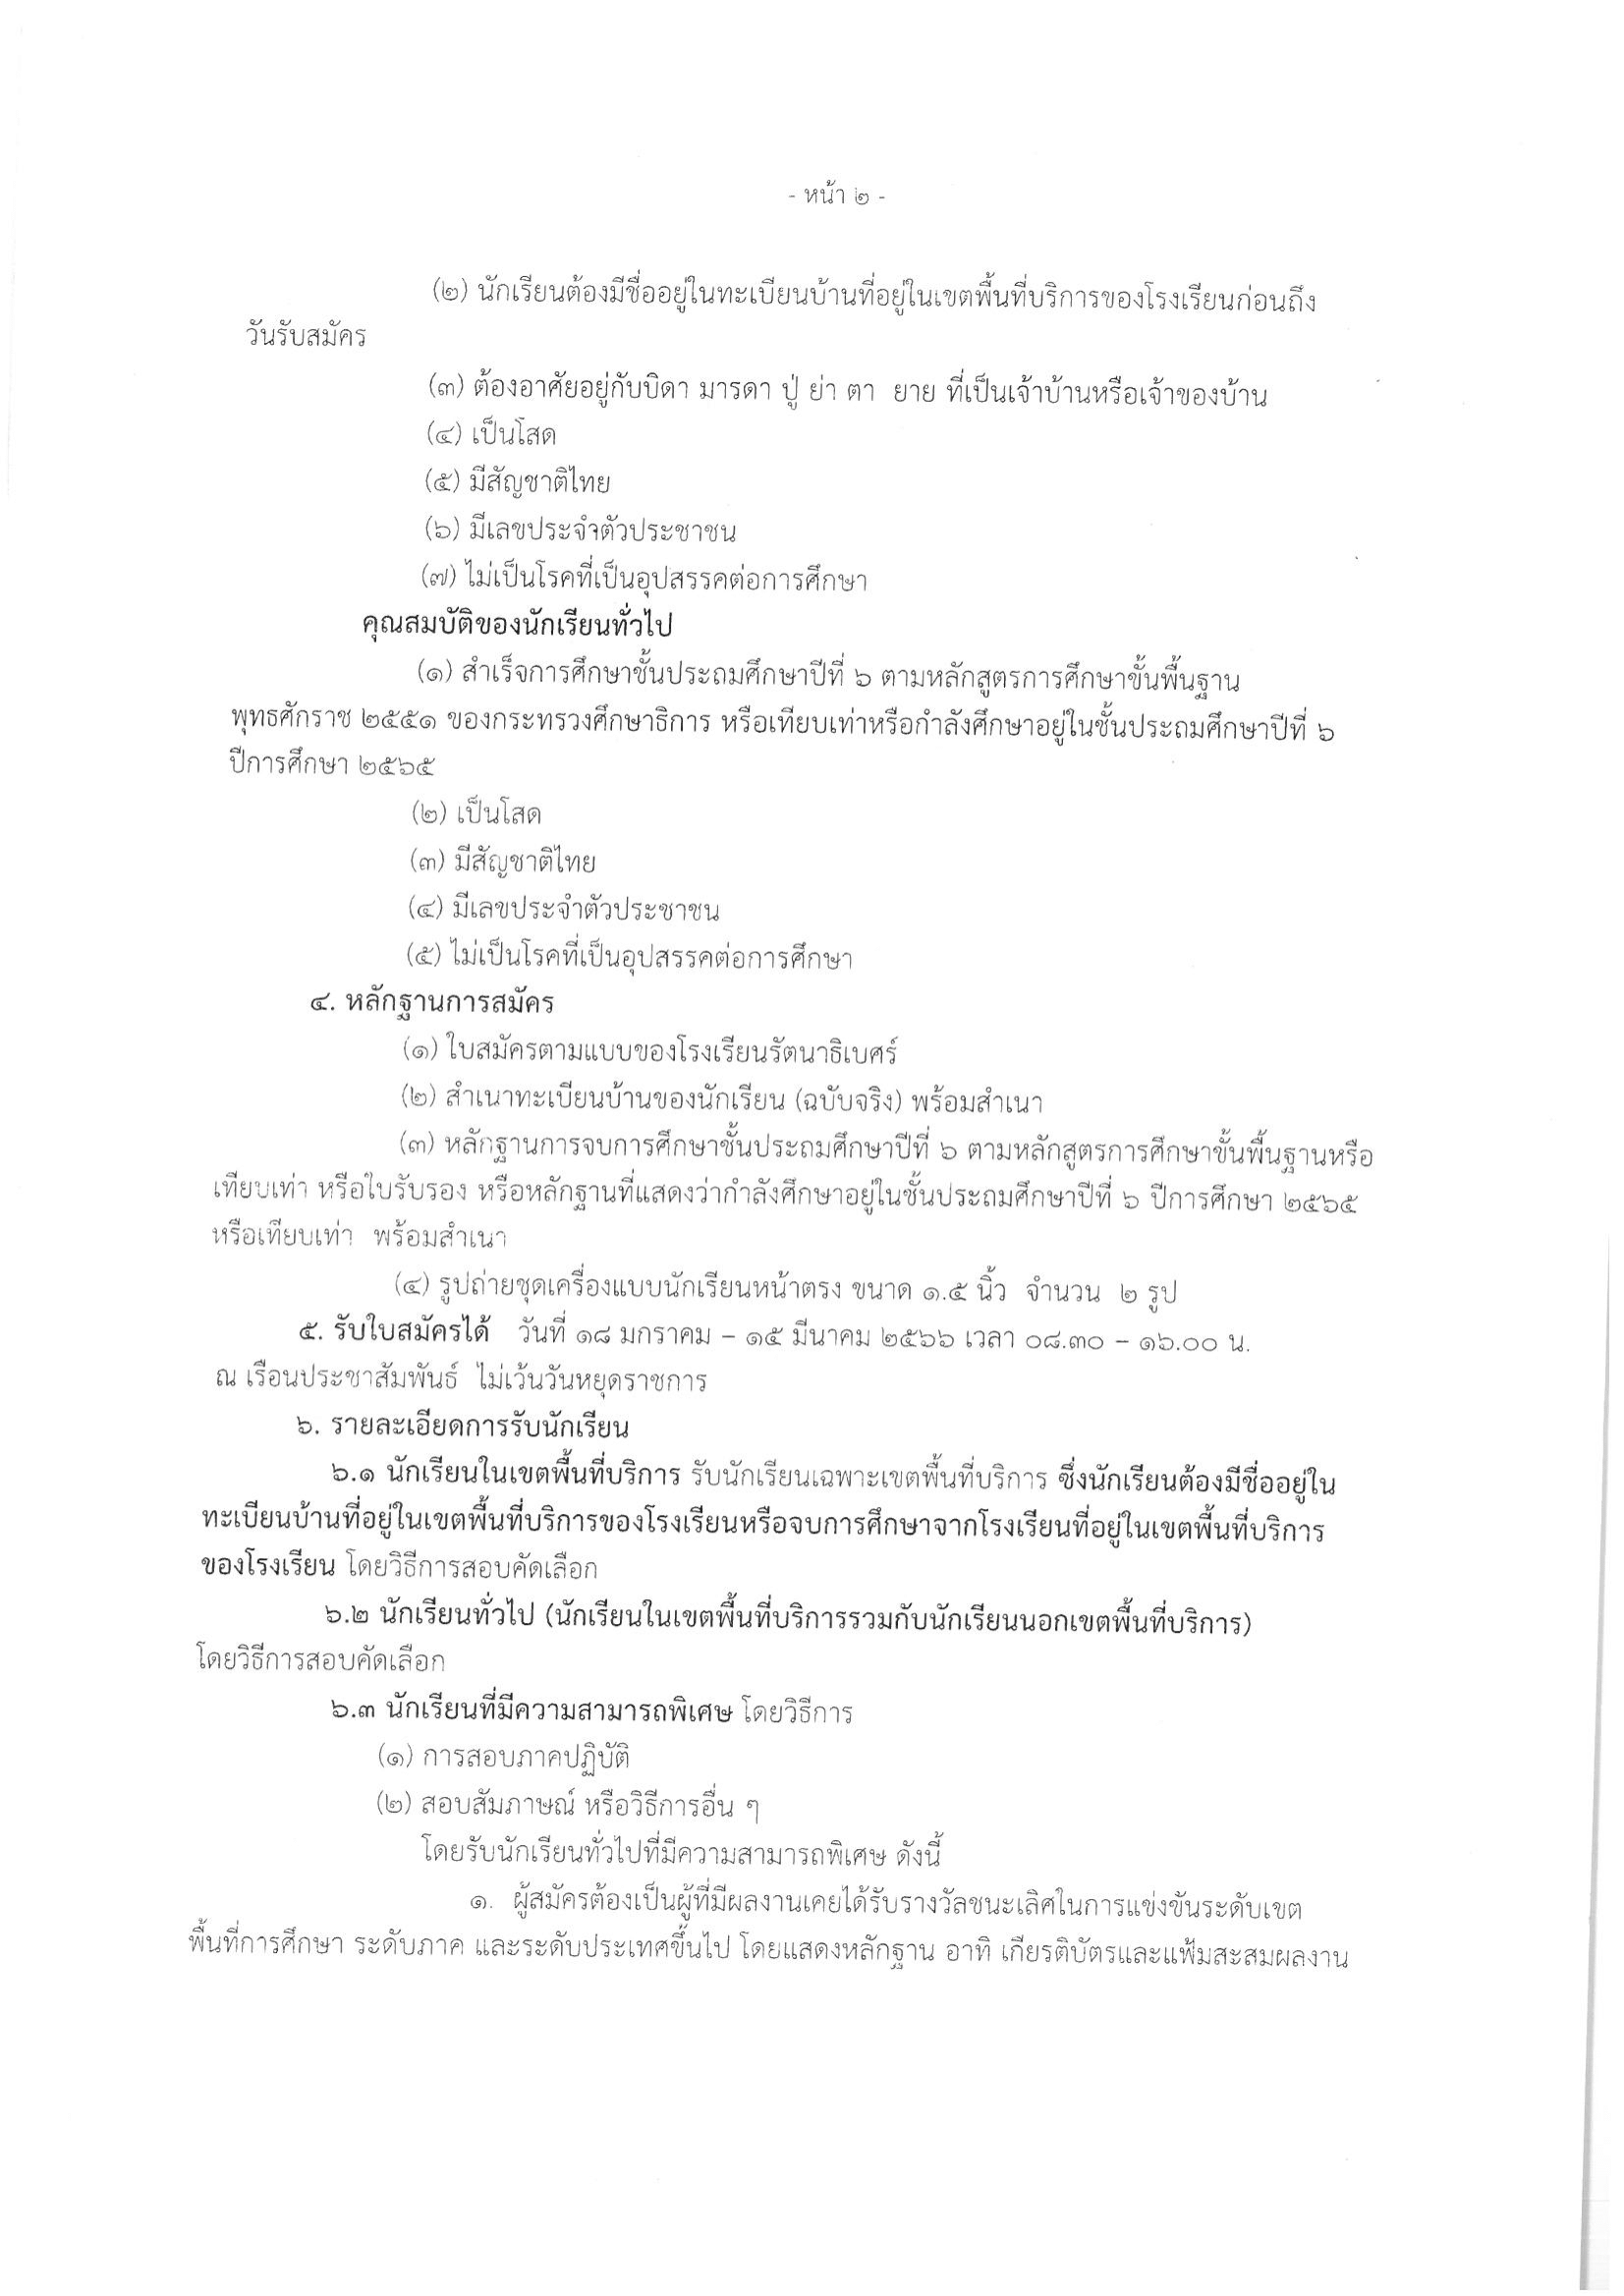 - หน้า ๒ -
(๒) นักเรียนต้องมีชื่ออยู่ในทะเบียนบ้านที่อยู่ในเขตพื้นที่บริการของโรงเรียนก่อนถึง
วันรับสมัคร
(๓) ต้องอาศัยอยู่กับบิดา มารดา ปู่ ย่า ตา ยาย ที่เป็นเจ้าบ้านหรือเจ้าของบ้าน
(๔) เป็นโสด
(๕) มีสัญชาติไทย
(๖) มีเลขประจำตัวประชาชน
(๗) ไม่เป็นโรคที่เป็นอุปสรรคต่อการศึกษา
คุณสมบัติของนักเรียนทั่วไป
(๑) สำเร็จการศึกษาชั้นประถมศึกษาปีที่ ๖ ตามหลักสูตรการศึกษาขั้นพื้นฐาน
พุทธศักราช ๒๕๕๑ ของกระทรวงศึกษาธิการ หรือเทียบเท่าหรือกำลังศึกษาอยู่ในชั้นประถมศึกษาปีที่ ๖
ปีการศึกษา ๒๕๖๕
(๒) เป็นโสด
(๓) มีสัญชาติไทย
(๔) มีเลขประจำตัวประชาชน
(๕) ไม่เป็นโรคที่เป็นอุปสรรคต่อการศึกษา
๔. หลักฐานการสมัคร
(๑) ใบสมัครตามแบบของโรงเรียนรัตนาธิเบศร์
(๒) สำเนาทะเบียนบ้านของนักเรียน (ฉบับจริง) พร้อมสำเนา
(๓) หลักฐานการจบการศึกษาชั้นประถมศึกษาปีที่ ๖ ตามหลักสูตรการศึกษาขั้นพื้นฐานหรือ
เทียบเท่า หรือใบรับรอง หรือหลักฐานที่แสดงว่ากำลังศึกษาอยู่ในชั้นประถมศึกษาปีที่ ๖ ปีการศึกษา ๒๕๖๕
หรือเทียบเท่า พร้อมสำเนา
(๔) รูปถ่ายชุดเครื่องแบบนักเรียนหน้าตรง ขนาด ๑.๕ นิ้ว จำนวน ๒ รูป
๕. รับใบสมัครได้ วันที่ ๑๘ มกราคม – ๑๕ มีนาคม ๒๕๖๖ เวลา ๐๘.๓๐ – ๑๖.๐๐ น.
ณ เรือนประชาสัมพันธ์ ไม่เว้นวันหยุดราชการ
๖. รายละเอียดการรับนักเรียน
๖.๑ นักเรียนในเขตพื้นที่บริการ รับนักเรียนเฉพาะเขตพื้นที่บริการ ซึ่งนักเรียนต้องมีชื่ออยู่ใน
ทะเบียนบ้านที่อยู่ในเขตพื้นที่บริการของโรงเรียนหรือจบการศึกษาจากโรงเรียนที่อยู่ในเขตพื้นที่บริการ
ของโรงเรียน โดยวิธีการสอบคัดเลือก
๖.๒ นักเรียนทั่วไป (นักเรียนในเขตพื้นที่บริการรวมกับนักเรียนนอกเขตพื้นที่บริการ)
โดยวิธีการสอบคัดเลือก
๖.๓ นักเรียนที่มีความสามารถพิเศษ โดยวิธีการ
(๑) การสอบภาคปฏิบัติ
(๒) สอบสัมภาษณ์ หรือวิธีการอื่น ๆ
โดยรับนักเรียนทั่วไปที่มีความสามารถพิเศษ ดังนี้
๑. ผู้สมัครต้องเป็นผู้ที่มีผลงานเคยได้รับรางวัลชนะเลิศในการแข่งขันระดับเขต
พื้นที่การศึกษา ระดับภาค และระดับประเทศขึ้นไป โดยแสดงหลักฐาน อาทิ เกียรติบัตรและแฟ้มสะสมผลงาน